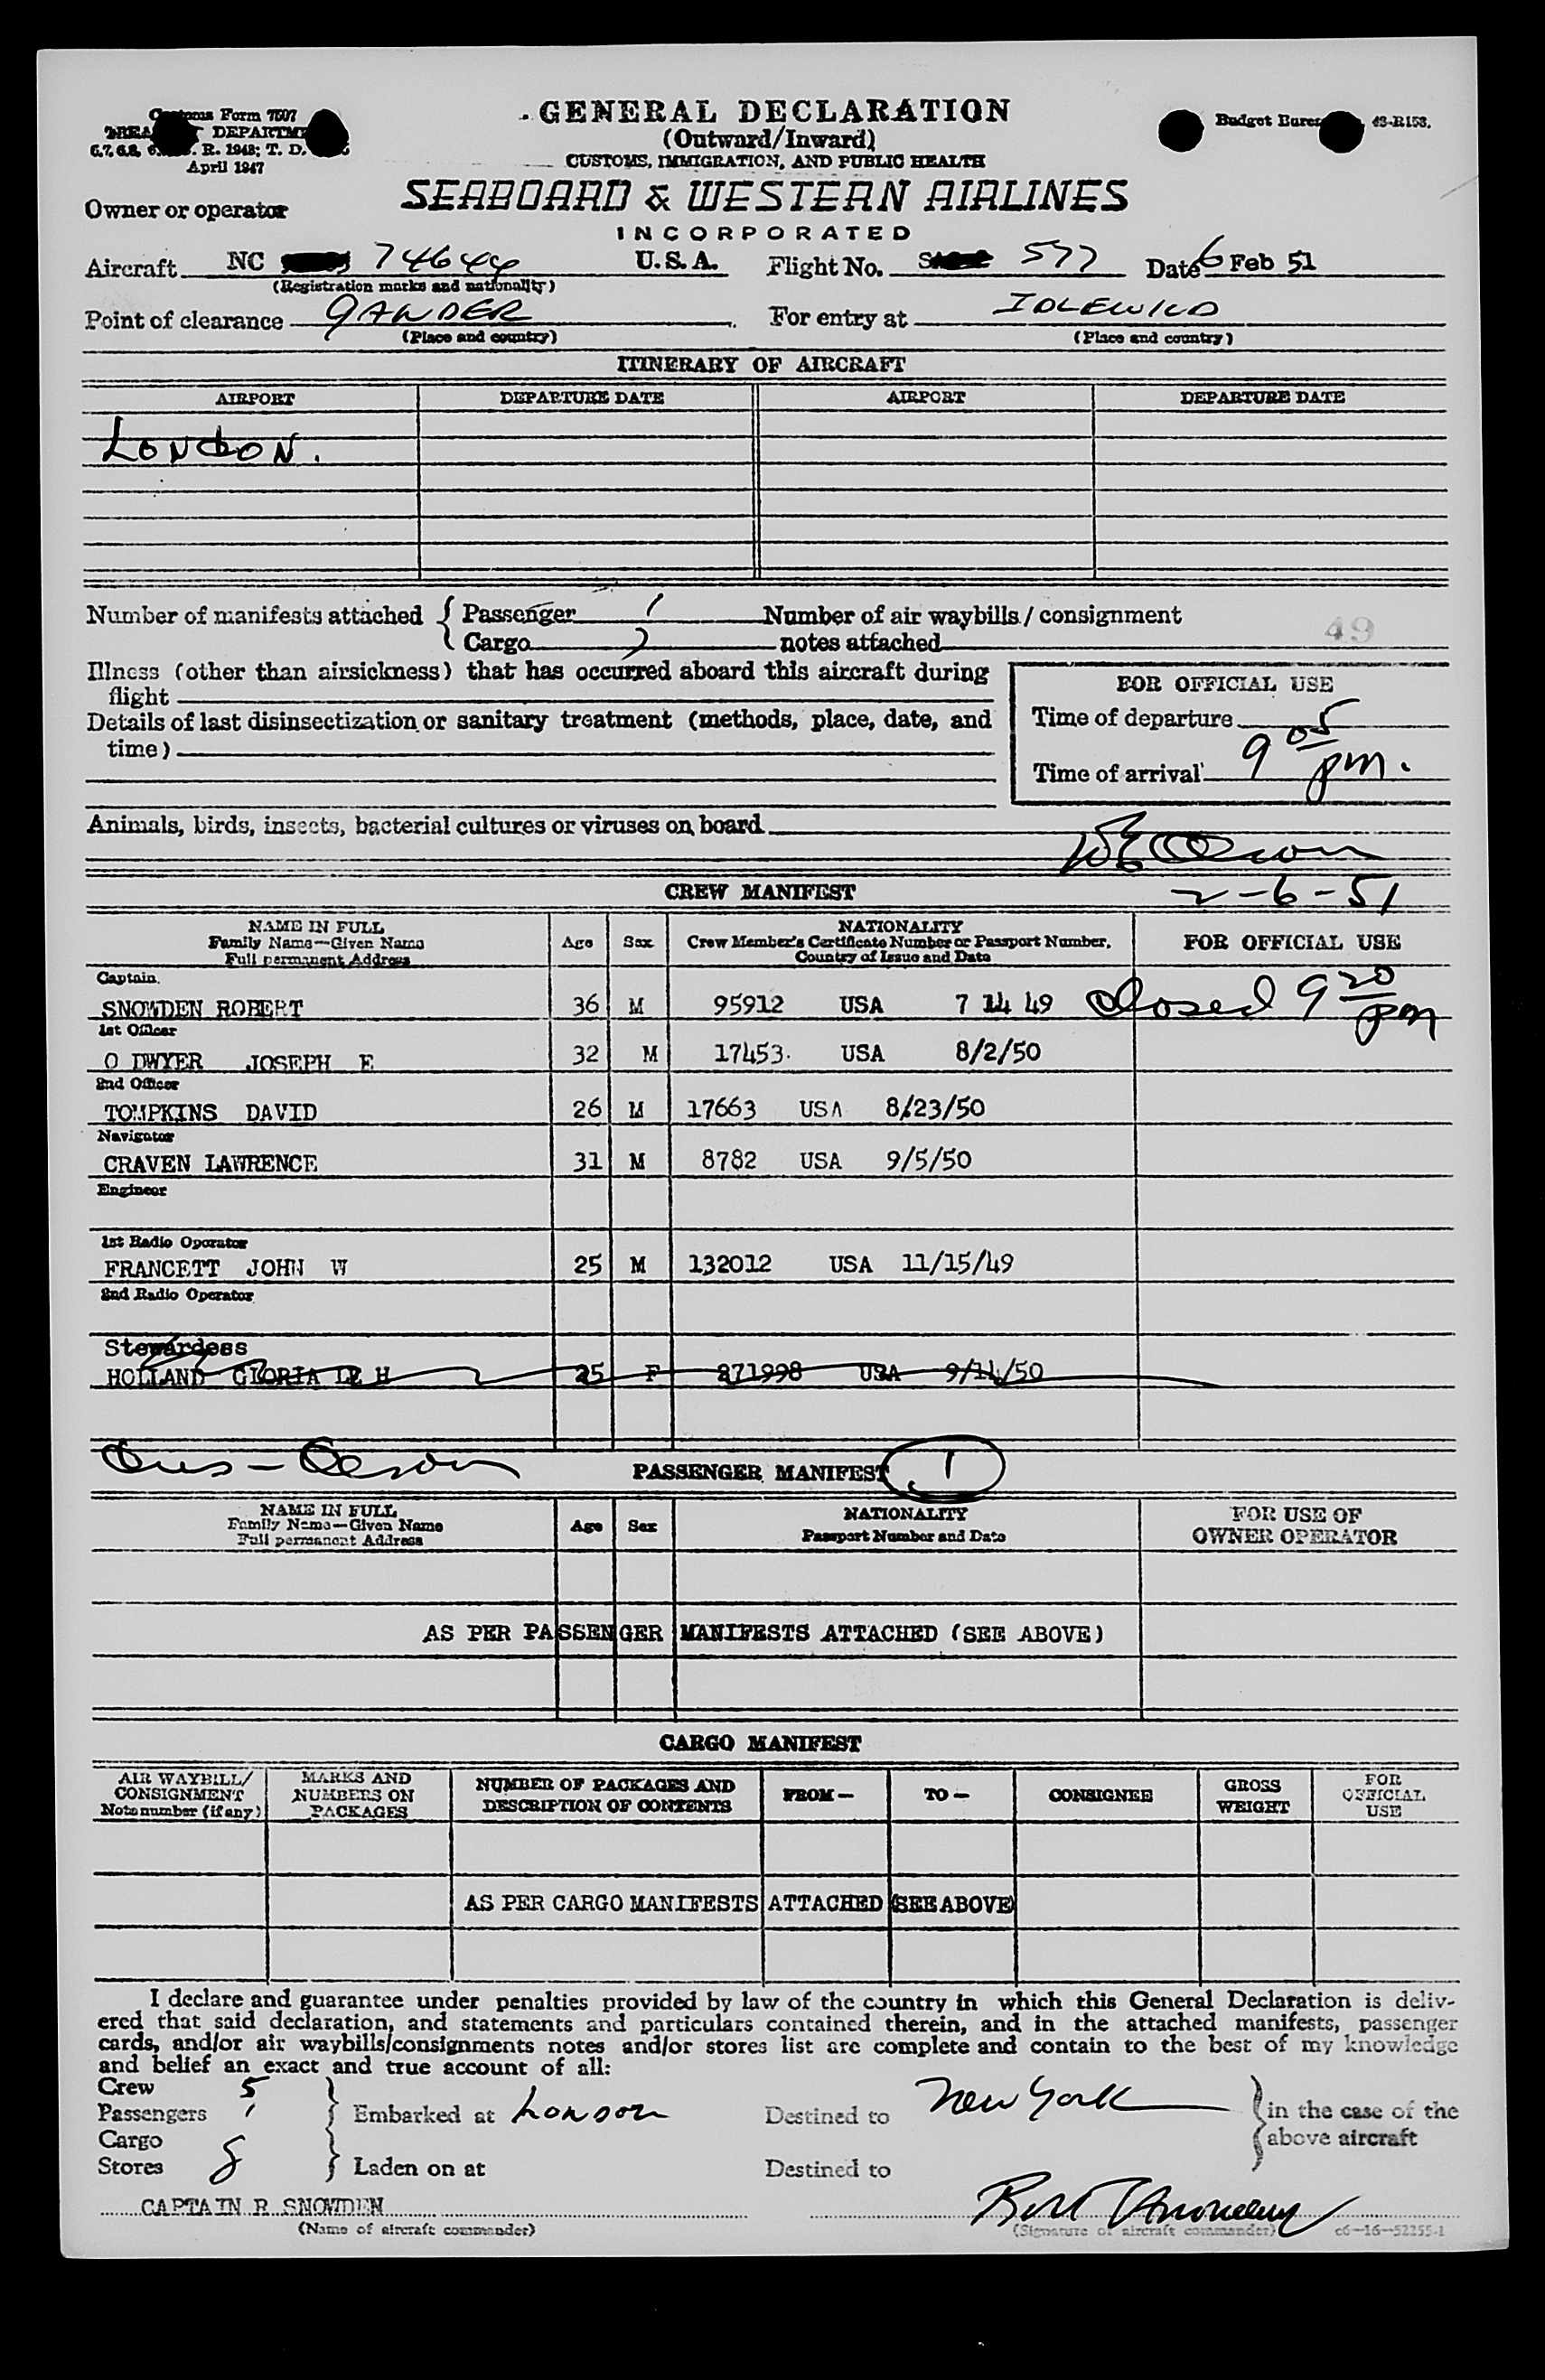 Customs Form 7507
DEPARTMENT
R. 1948; T. D.
April 1947
GENERAL DECLARATION
(Outward/Inward)
CUSTOMS, IMMIGRATION, AND PUBLIC HEALTH
Budget Bureau 43-R153.
SEABOARD & WESTERN AIRLINES
INCORPORATED
Owner or operator
Aircraft NC 74644 U.S.A. Flight No. 577 Date 6 Feb 51
(Registration marks and nationality)
Point of clearance GANDER For entry at IDLEWILD
(Place and country) (Place and country)
ITINERARY OF AIRCRAFT
AIRPORT DEPARTURE DATE AIRPORT DEPARTURE DATE
LONDON.
Number of manifests attached { Passenger 1 Number of air waybills / consignment
Cargo 2 notes attached 49
Illness (other than airsickness) that has occurred aboard this aircraft during
flight
Details of last disinsectization or sanitary treatment (methods, place, date, and
time)
FOR OFFICIAL USE
Time of departure
Time of arrival 9 05 pm.
Animals, birds, insects, bacterial cultures or viruses on board
CREW MANIFEST 2-6-51
NAME IN FULL
Family Name—Given Name
Full permanent Address
Age Sex
NATIONALITY
Crew Member's Certificate Number or Passport Number,
Country of Issue and Date
FOR OFFICIAL USE
Captain
SNOWDEN ROBERT 36 M 95912 USA 7 14 49 Closed 9 20 pm
1st Officer
O DWYER JOSEPH E 32 M 17453. USA 8/2/50
2nd Officer
TOMPKINS DAVID 26 M 17663 USA 8/23/50
Navigator
CRAVEN LAWRENCE 31 M 8782 USA 9/5/50
Engineer
1st Radio Operator
FRANCETT JOHN W 25 M 132012 USA 11/15/49
2nd Radio Operator
Stewardess
HOLLAND GLORIA LE H 25 F 871998 USA 9/14/50
PASSENGER MANIFEST 1
NAME IN FULL
Family Name—Given Name
Full permanent Address
Age Sex
NATIONALITY
Passport Number and Date
FOR USE OF
OWNER OPERATOR
AS PER PASSENGER MANIFESTS ATTACHED (SEE ABOVE)
CARGO MANIFEST
AIR WAYBILL/
CONSIGNMENT
Note number (if any)
MARKS AND
NUMBERS ON
PACKAGES
NUMBER OF PACKAGES AND
DESCRIPTION OF CONTENTS
FROM — TO — CONSIGNEE
GROSS
WEIGHT
FOR
OFFICIAL
USE
AS PER CARGO MANIFESTS ATTACHED (SEE ABOVE)
I declare and guarantee under penalties provided by law of the country in which this General Declaration is deliv-
ered that said declaration, and statements and particulars contained therein, and in the attached manifests, passenger
cards, and/or air waybills/consignments notes and/or stores list are complete and contain to the best of my knowledge
and belief an exact and true account of all:
Crew 5
Passengers 1 } Embarked at London Destined to New York } in the case of the
Cargo above aircraft
Stores } Laden on at Destined to
CAPTAIN R SNOWDEN
(Name of aircraft commander) (Signature of aircraft commander) c6—16—52255-1